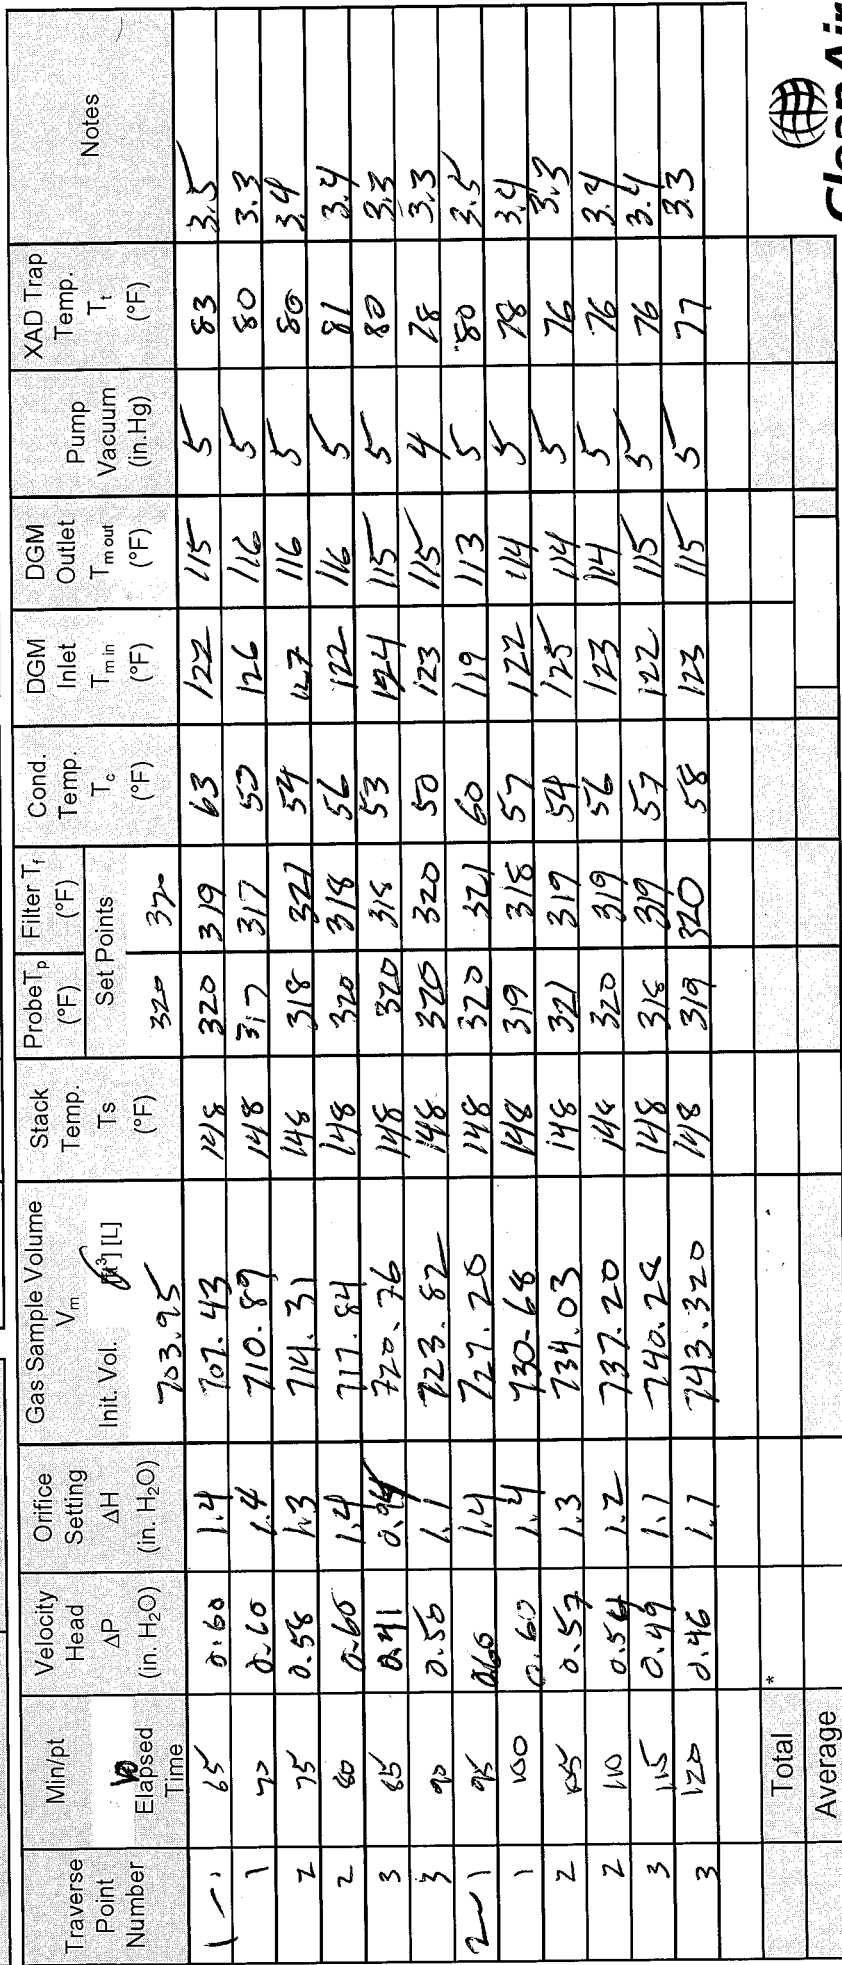 Traverse Point Number | Min/pt 10 Elapsed Time | Velocity Head ΔP (in. H₂O) | Orifice Setting ΔH (in. H₂O) | Gas Sample Volume Vm Init. Vol. [ft³] [L] 703.95 | Stack Temp. Ts (°F) | Probe Tp (°F) Set Points 320 | Filter Tf (°F) Set Points 320 | Cond. Temp. Tc (°F) | DGM Inlet Tm in (°F) | DGM Outlet Tm out (°F) | Pump Vacuum (in.Hg) | XAD Trap Temp. Tt (°F) | Notes
1-1 | 65 | 0.60 | 1.4 | 707.43 | 148 | 320 | 319 | 63 | 122 | 115 | 5 | 83 | 3.5
1 | 70 | 0.60 | 1.4 | 710.89 | 148 | 317 | 317 | 53 | 126 | 116 | 5 | 80 | 3.3
2 | 75 | 0.58 | 1.3 | 714.31 | 148 | 318 | 321 | 54 | 127 | 116 | 5 | 80 | 3.4
2 | 80 | 0.60 | 1.4 | 717.84 | 148 | 320 | 318 | 56 | 122 | 116 | 5 | 81 | 3.4
3 | 85 | 0.41 | 720.76 | 148 | 320 | 318 | 53 | 124 | 115 | 5 | 80 | 3.3
3 | 90 | 0.50 | 1.1 | 723.82 | 148 | 320 | 320 | 50 | 123 | 115 | 4 | 78 | 3.3
2-1 | 95 | 0.60 | 1.4 | 727.20 | 148 | 320 | 321 | 60 | 119 | 113 | 5 | 80 | 3.5
1 | 100 | 0.60 | 1.4 | 730.68 | 148 | 319 | 318 | 57 | 122 | 114 | 5 | 78 | 3.4
2 | 105 | 0.57 | 1.3 | 734.03 | 148 | 321 | 319 | 54 | 125 | 114 | 5 | 76 | 3.3
2 | 110 | 0.54 | 1.2 | 737.20 | 148 | 320 | 319 | 56 | 123 | 114 | 5 | 76 | 3.4
3 | 115 | 0.49 | 1.1 | 740.28 | 148 | 318 | 319 | 57 | 122 | 115 | 5 | 76 | 3.4
3 | 120 | 0.46 | 1.1 | 743.320 | 148 | 319 | 320 | 58 | 123 | 115 | 5 | 77 | 3.3
Total | *
Average
CleanAir